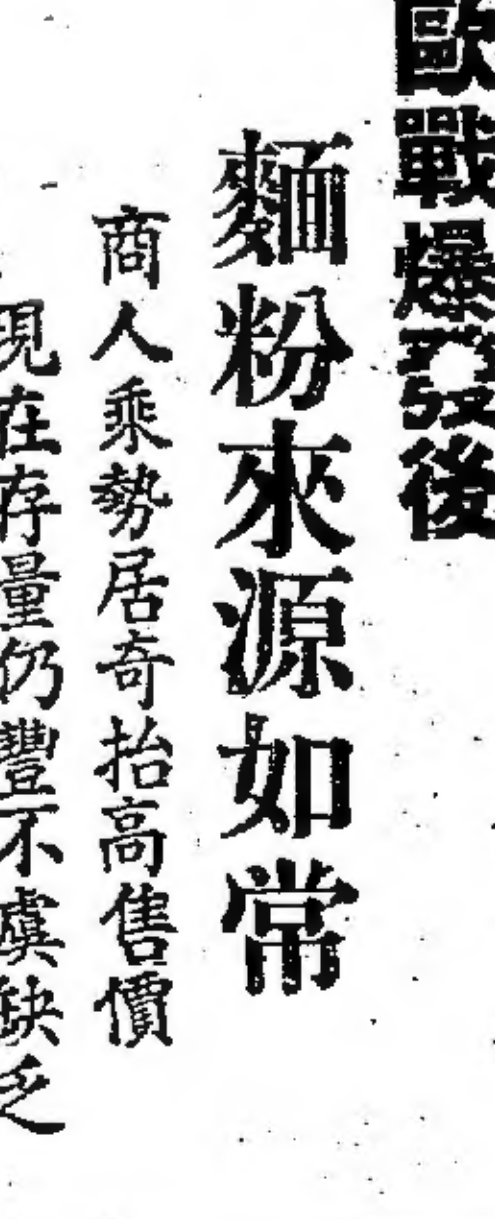 歐戰爆發後
麵粉來源如常
商人乘勢居奇抬高售價
現在存量仍豐不虞缺乏